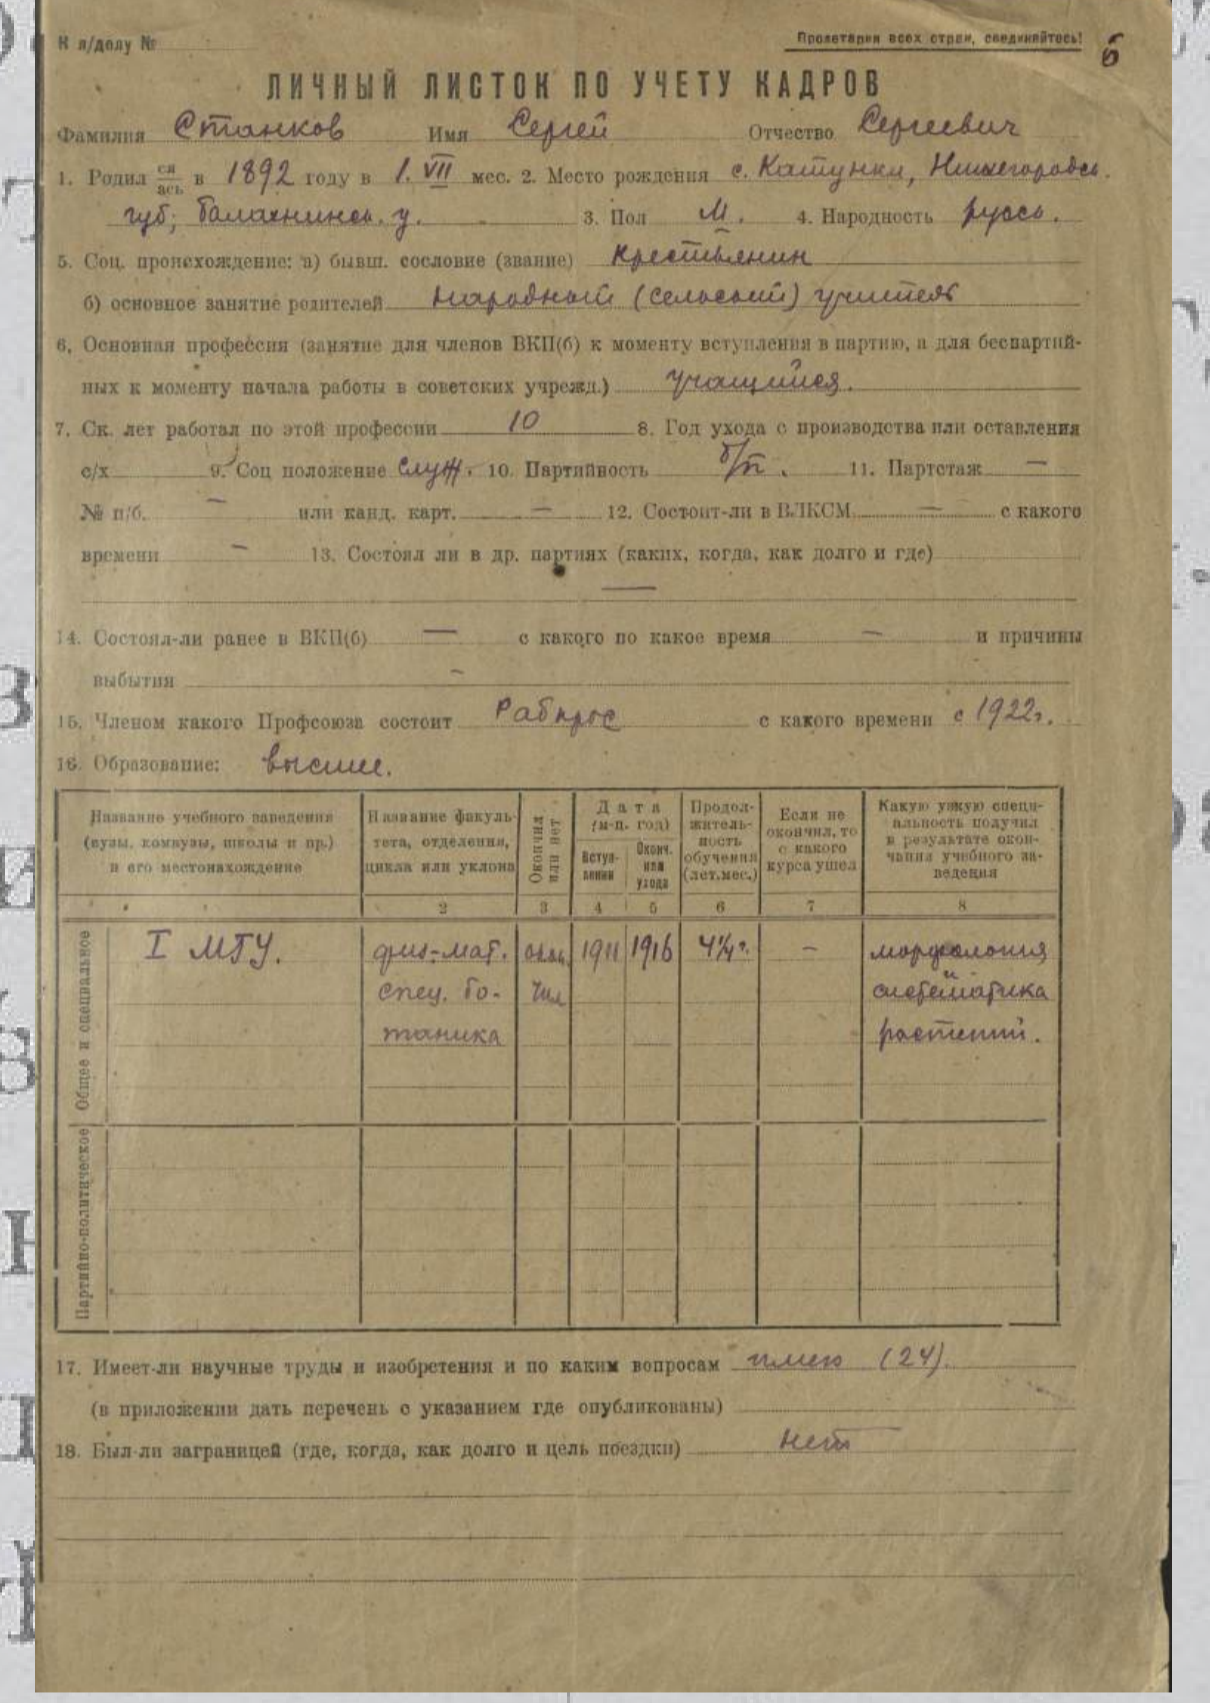 К л/делу №
Пролетарии всех стран, соединяйтесь!
6
ЛИЧНЫЙ ЛИСТОК ПО УЧЕТУ КАДРОВ
Фамилия Станков Имя Сергей Отчество Сергеевич
1. Родил ся/ась в 1892 году в 1. VII мес. 2. Место рождения с. Катунки, Нижегородск.
губ; Балахнинск. у. 3. Пол М. 4. Народность русск.
5. Соц. происхождение: а) бывш. сословие (звание) крестьянин
б) основное занятие родителей народный (сельский) учитель
6. Основная профессия (занятие для членов ВКП(б) к моменту вступления в партию, а для беспартий-
ных к моменту начала работы в советских учрежд.) учащийся.
7. Ск. лет работал по этой профессии 10 8. Год ухода с производства или оставления
с/х 9. Соц положение служ. 10. Партийность б/п. 11. Партстаж —
№ п/б. — или канд. карт. — 12. Состоит-ли в ВЛКСМ — с какого
времени — 13. Состоял ли в др. партиях (каких, когда, как долго и где)
—
14. Состоял-ли ранее в ВКП(б) — с какого по какое время — и причины
выбытия —
15. Членом какого Профсоюза состоит Рабпрос с какого времени с 1922г.
16. Образование: высшее.
Название учебного заведения
(вузы, комвузы, школы и пр.)
и его местонахождение
Название факуль-
тета, отделения,
цикла или уклона
Окончил
или нет
Дата
(м-ц. год)
Вступ-
ления
Оконч.
или
ухода
Продол-
житель-
ность
обучения
(лет.мес.)
Если не
окончил, то
с какого
курса ушел
Какую узкую специ-
альность получил
в результате окон-
чания учебного за-
ведения
2 3 4 5 6 7 8
Общее и специальное
I МГУ. физ-мат. окон 1911 1916 4¼ г. — морфология и
спец. бо- чил систематика
таника растений.
Партийно-политическое
17. Имеет-ли научные труды и изобретения и по каким вопросам имею (24).
(в приложении дать перечень с указанием где опубликованы)
18. Был-ли заграницей (где, когда, как долго и цель поездки) нет